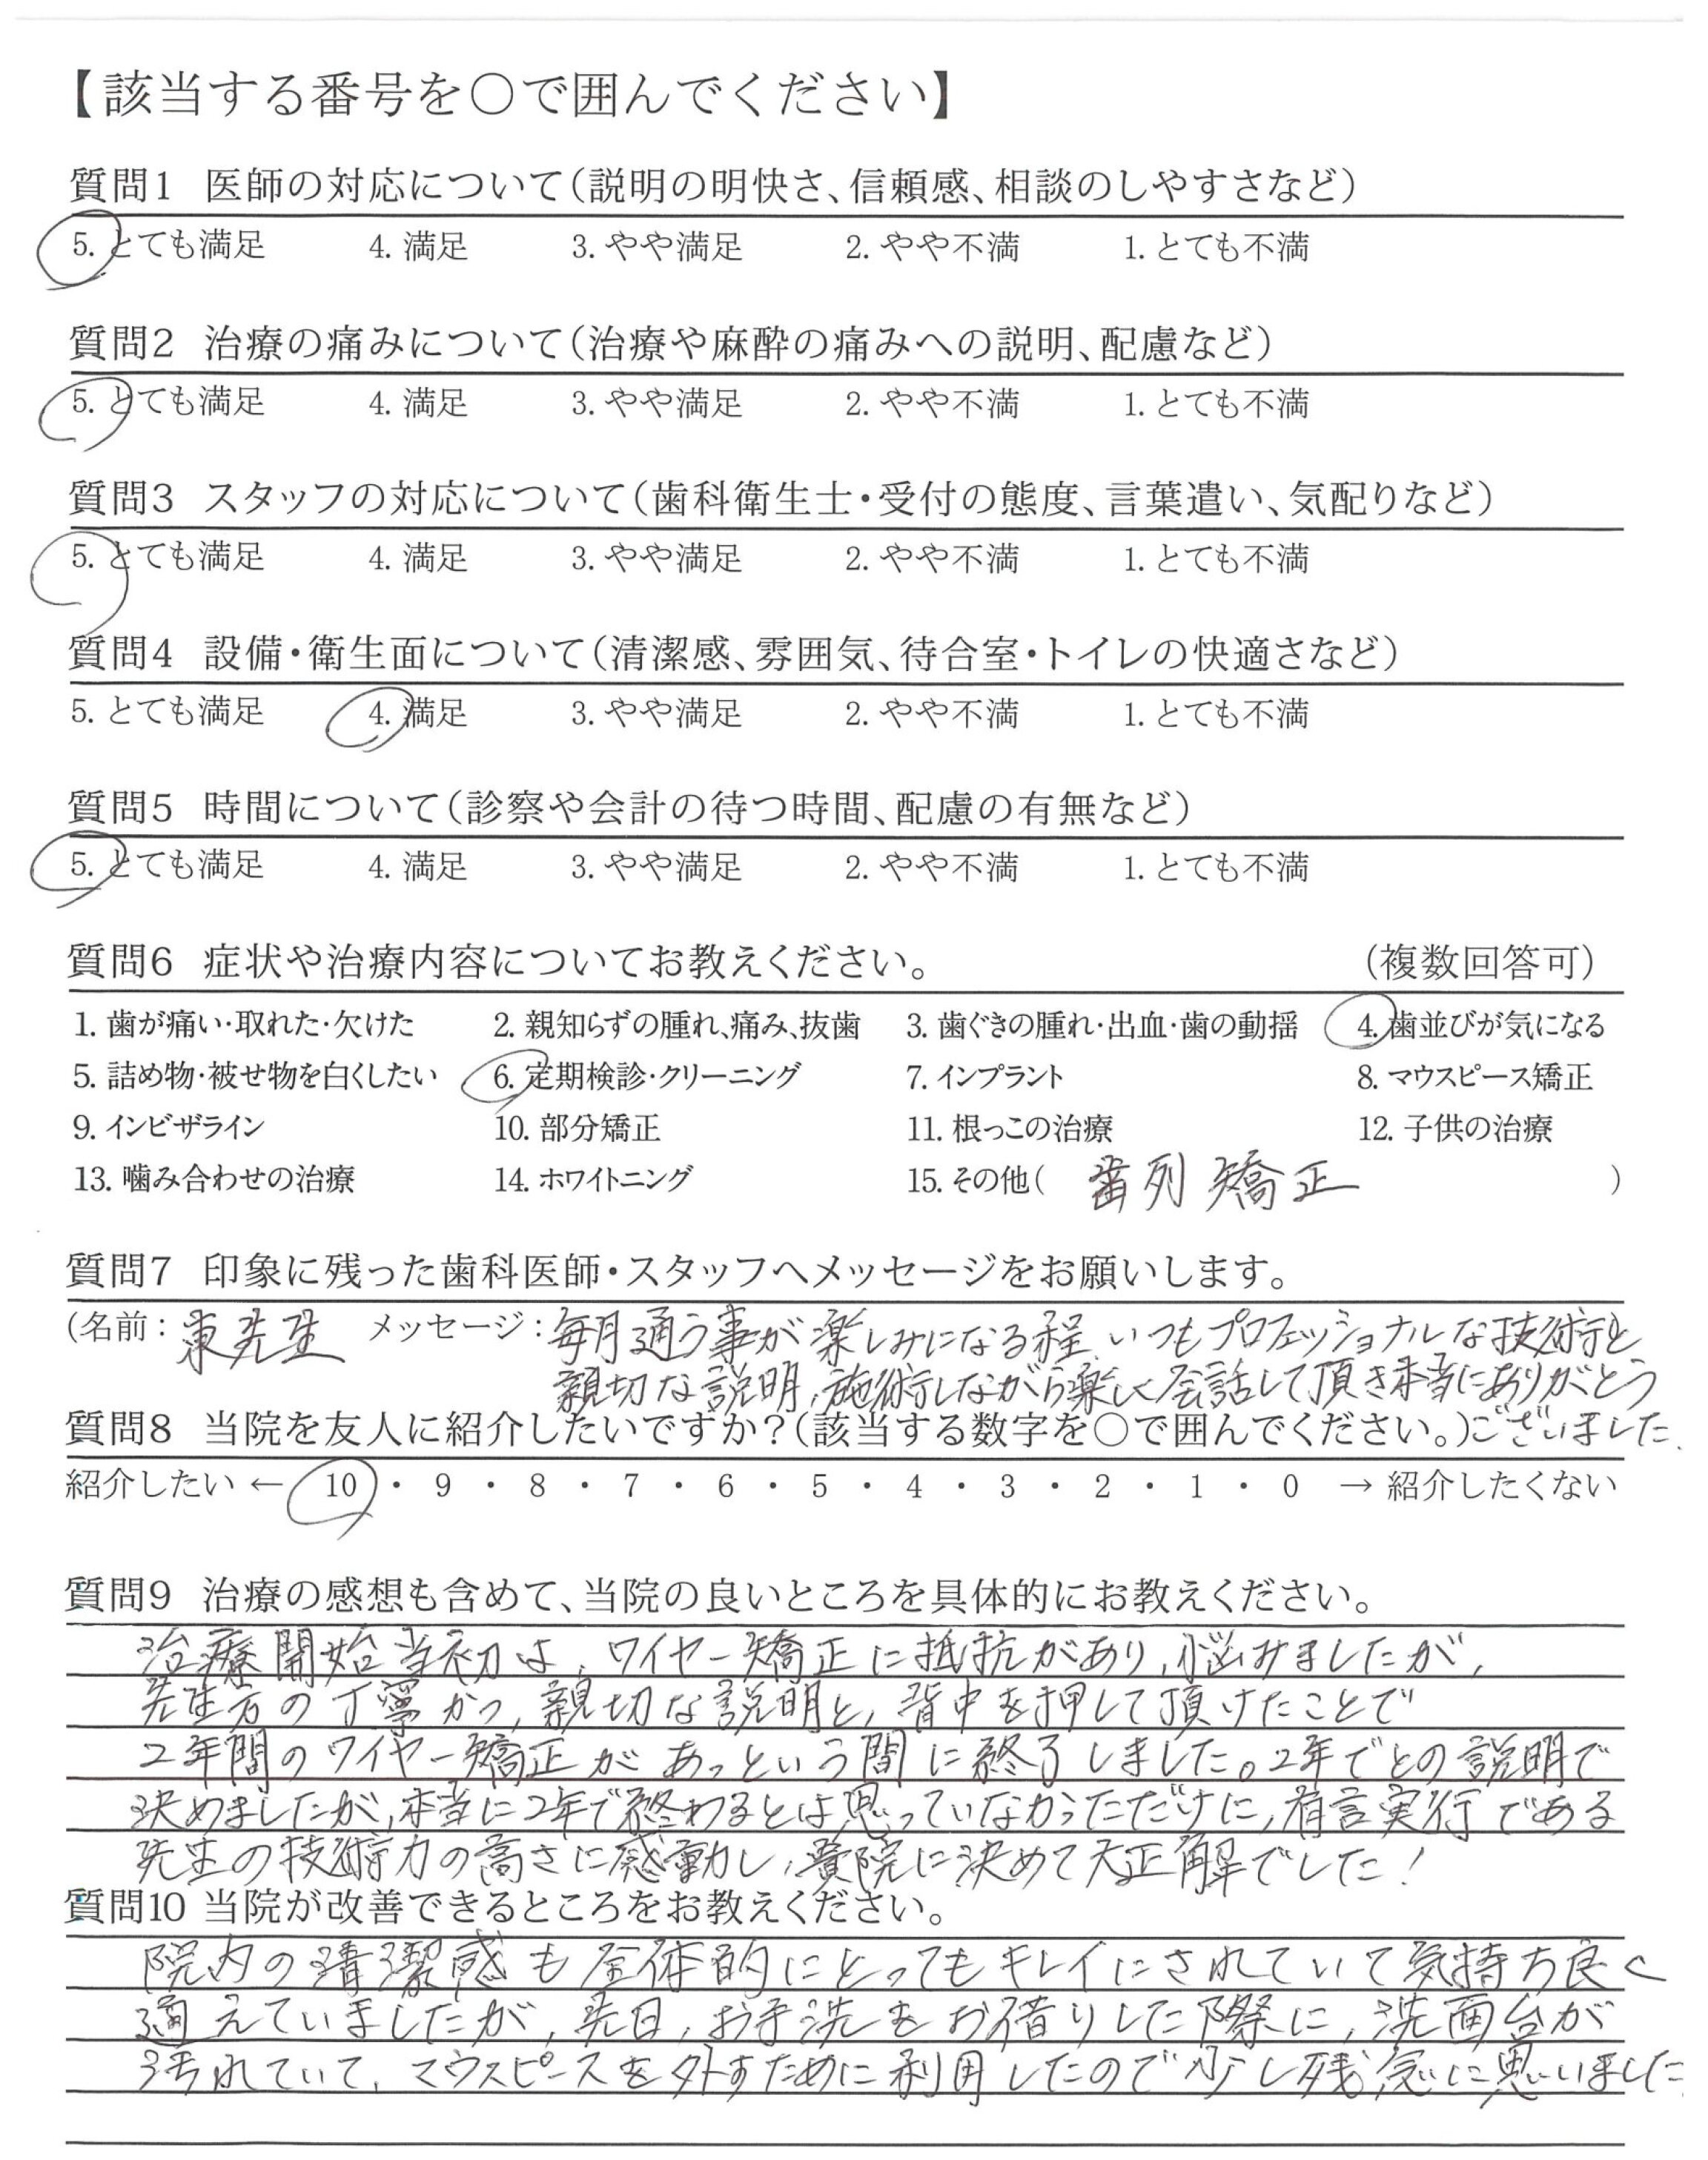 【該当する番号を○で囲んでください】
質問1 医師の対応について(説明の明快さ、信頼感、相談のしやすさなど)
5. とても満足 4. 満足 3. やや満足 2. やや不満 1. とても不満
質問2 治療の痛みについて(治療や麻酔の痛みへの説明、配慮など)
5. とても満足 4. 満足 3. やや満足 2. やや不満 1. とても不満
質問3 スタッフの対応について(歯科衛生士・受付の態度、言葉遣い、気配りなど)
5. とても満足 4. 満足 3. やや満足 2. やや不満 1. とても不満
質問4 設備・衛生面について(清潔感、雰囲気、待合室・トイレの快適さなど)
5. とても満足 4. 満足 3. やや満足 2. やや不満 1. とても不満
質問5 時間について(診察や会計の待つ時間、配慮の有無など)
5. とても満足 4. 満足 3. やや満足 2. やや不満 1. とても不満
質問6 症状や治療内容についてお教えください。 (複数回答可)
1. 歯が痛い・取れた・欠けた 2. 親知らずの腫れ、痛み、抜歯 3. 歯ぐきの腫れ・出血・歯の動揺 4. 歯並びが気になる
5. 詰め物・被せ物を白くしたい 6. 定期検診・クリーニング 7. インプラント 8. マウスピース矯正
9. インビザライン 10. 部分矯正 11. 根っこの治療 12. 子供の治療
13. 噛み合わせの治療 14. ホワイトニング 15. その他( 歯列矯正 )
質問7 印象に残った歯科医師・スタッフへメッセージをお願いします。
(名前: 東先生 メッセージ: 毎月通う事が楽しみになる程、いつもプロフェッショナルな技術と
親切な説明、施術しながら楽しく会話して頂き本当にありがとう
質問8 当院を友人に紹介したいですか?(該当する数字を○で囲んでください。) ございました。
紹介したい ← 10 ・ 9 ・ 8 ・ 7 ・ 6 ・ 5 ・ 4 ・ 3 ・ 2 ・ 1 ・ 0 → 紹介したくない
質問9 治療の感想も含めて、当院の良いところを具体的にお教えください。
治療開始当初は、ワイヤー矯正に抵抗があり、悩みましたが、
先生方の丁寧かつ、親切な説明と、背中を押して頂けたことで
2年間のワイヤー矯正があっという間に終了しました。2年でとの説明で
決めましたが、本当に2年で終わるとは思っていなかっただけに、有言実行である
先生の技術力の高さに感動し、貴院に決めて大正解でした!
質問10 当院が改善できるところをお教えください。
院内の清潔感も全体的にとってもキレイにされていて気持ち良く
通えていましたが、先日、お手洗をお借りした際に、洗面台が
汚れていて、マウスピースを外すために利用したので少し残念に思いました